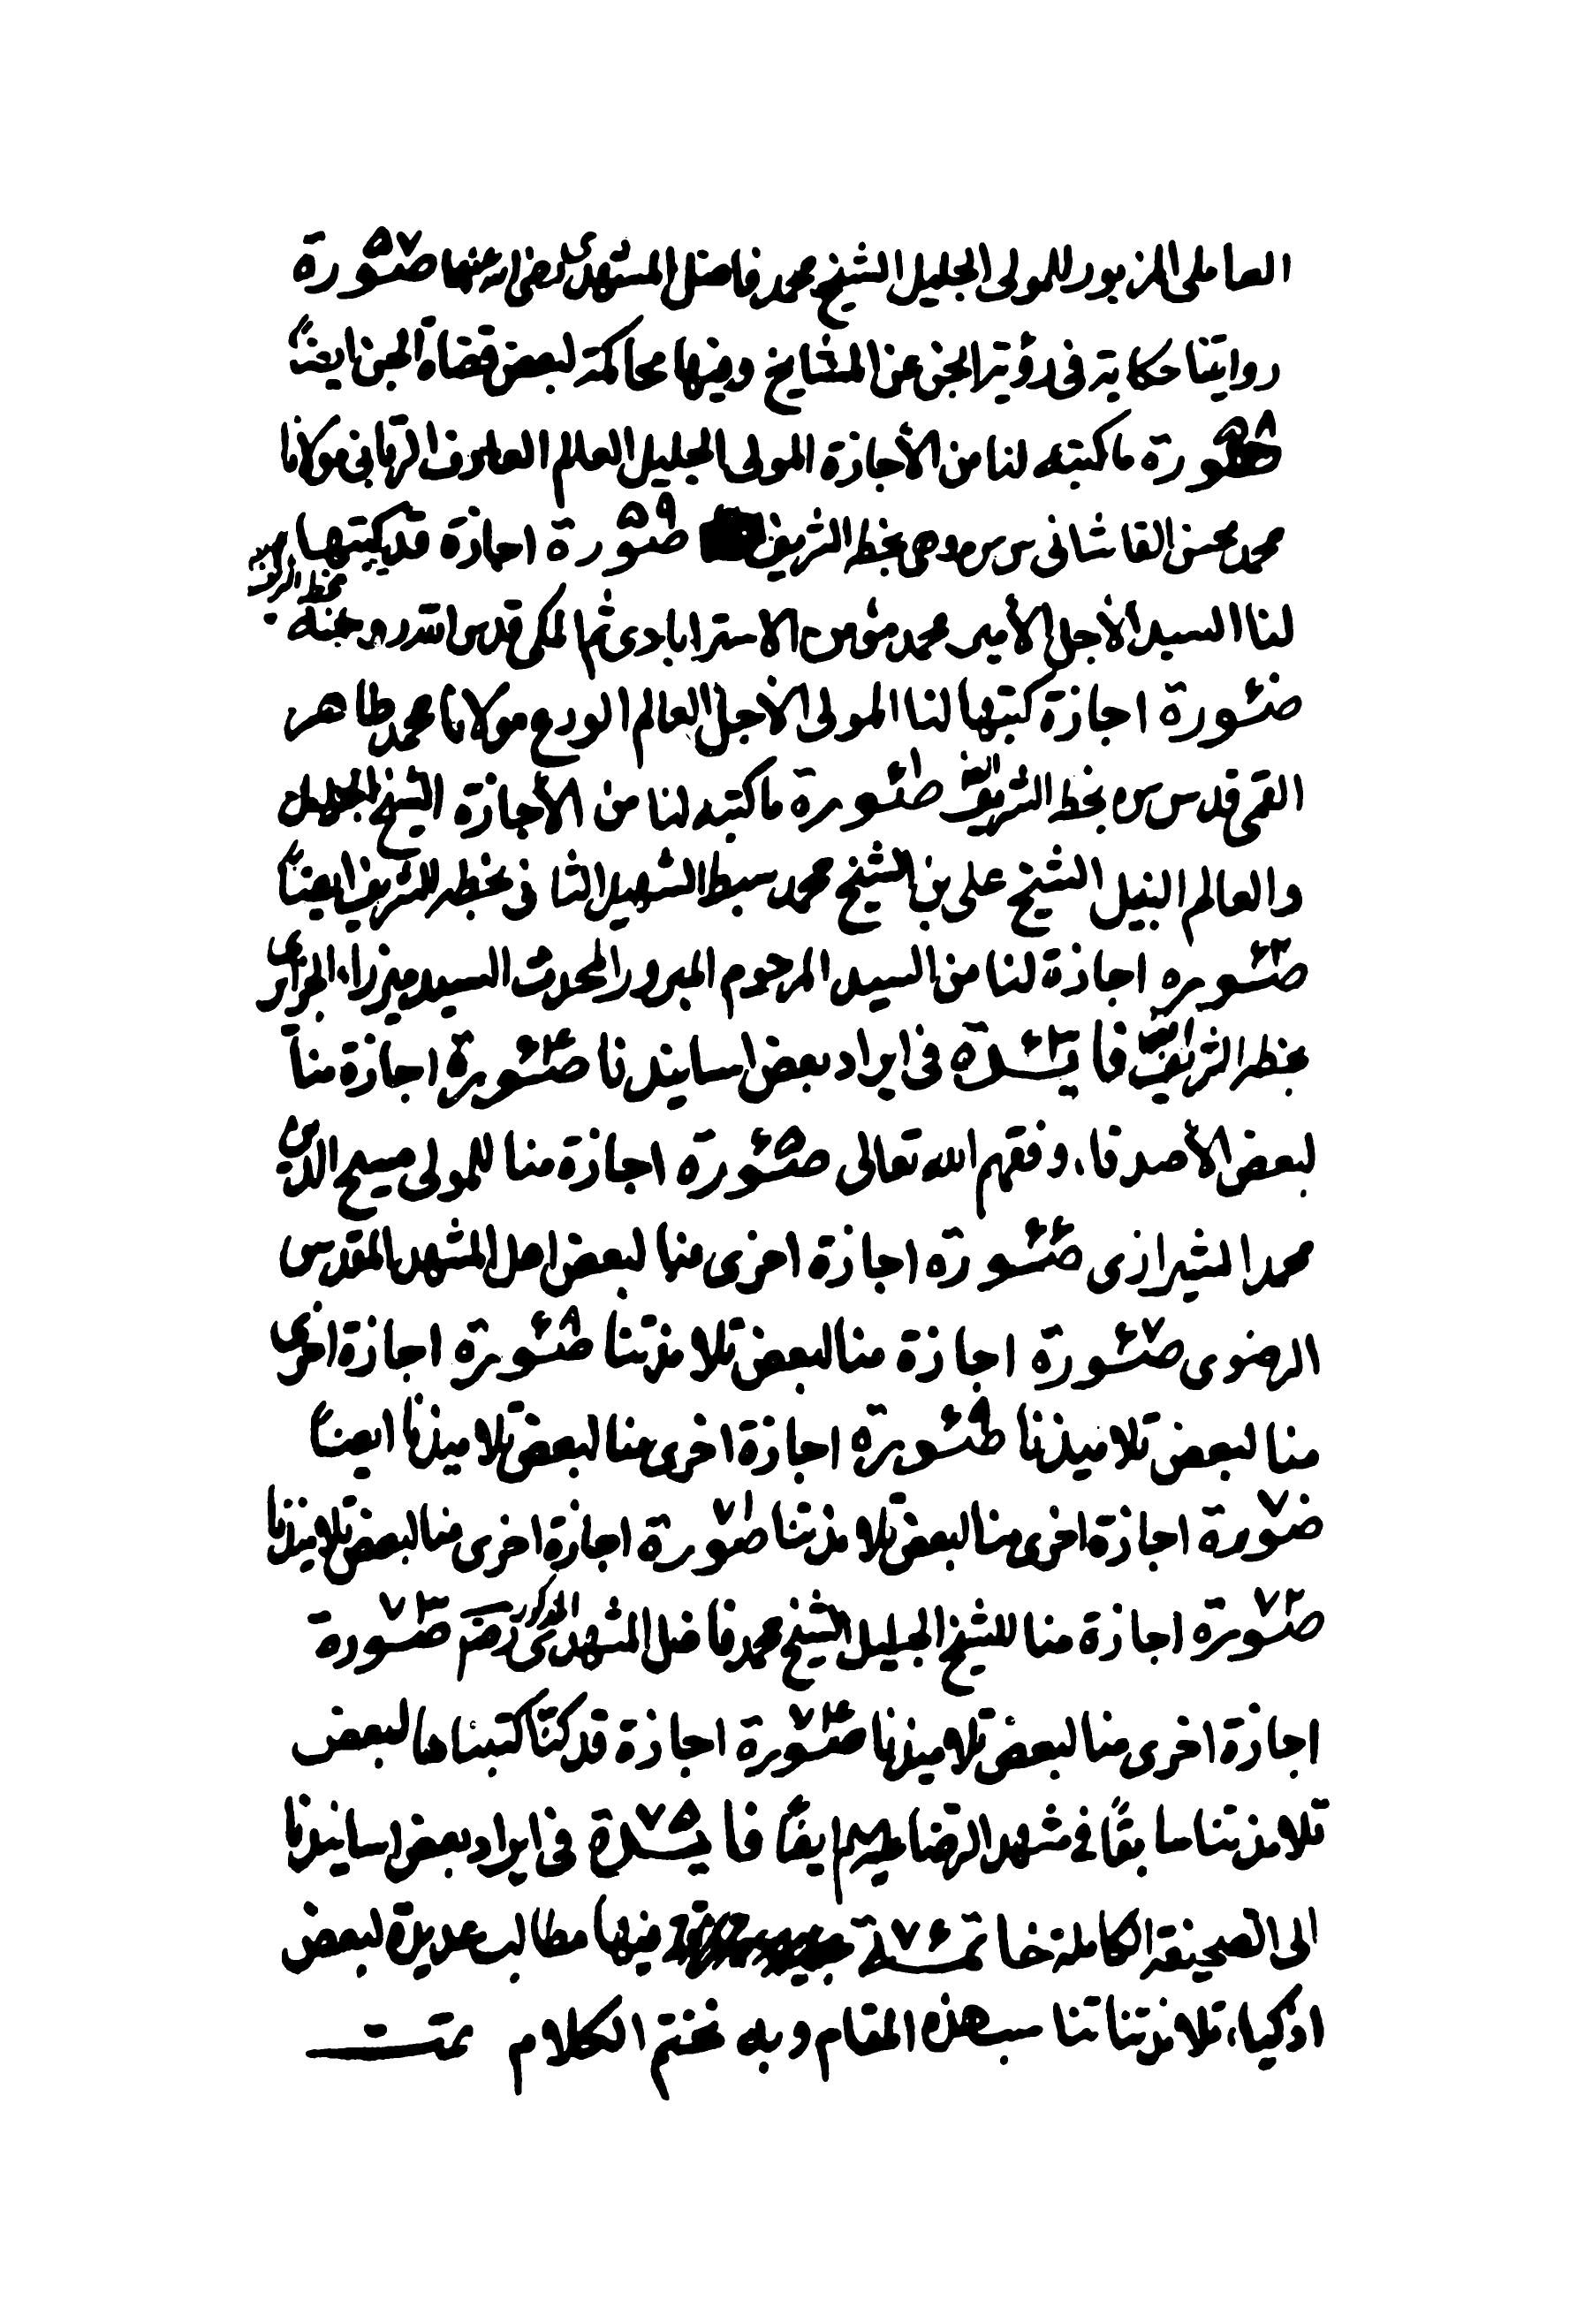 العاملى المزبور للمولى الجليل الشيخ محمد فاضل المشهدى رضى الله عنهما صورة ٥٧
روايتنا حكاية فى رؤية الجن عن المشايخ وفيها محاكمة لبعض قضاة الجن ايضاً
صورة ٥٨ ما كتبه لنا من الأجازة المولى الجليل العالم العارف الربانى مولانا
محمد محسن القاشانى قدس سره بخطه الشريف صورة ٥٩ اجازة قد كتبها
بخطه الشريف
لنا السيد الأجل الأمير محمد مؤمن الاسترابادى ثم المكى قدس الله روحه
صورة ٦٠ اجازة كتبها لنا المولى الأجل العالم الورع مولانا محمد طاهر
القمى قدس سره بخطه الشريف ايضا صورة ٦١ ما كتبه لنا من الأجازة الشيخ الجليل
والعالم النبيل الشيخ على بن الشيخ محمد سبط الشهيد الثانى بخطه الشريف ايضاً
صورة ٦٢ اجازة لنا من السيد المرحوم المبرور المحدث السيد ميرزا الجزايرى
بخطه الشريف ايضا فايدة ٦٣ فى ايراد بعض اسانيدنا صورة ٦٤ اجازة منا
لبعض الأصدقاء وفقهم الله تعالى صورة ٦٥ اجازة منا للمولى مسيح الدين
محمد الشيرازى صورة ٦٦ اجازة اخرى منا لبعض اهل المشهد المقدس
الرضوى صورة ٦٧ اجازة منا لبعض تلامذتنا صورة ٦٨ اجازة اخرى
منا لبعض تلاميذنا صورة ٦٩ اجازة اخرى منا لبعض تلاميذنا ايضاً
صورة ٧٠ اجازة اخرى منا لبعض تلامذتنا صورة ٧١ اجازة اخرى منا لبعض تلاميذنا
صورة ٧٢ اجازة منا للشيخ الجليل الشيخ محمد فاضل المشهدى المذكور صورة ٧٣
اجازة اخرى منا لبعض تلاميذنا صورة ٧٤ اجازة قد كنّا كتبناها لبعض
تلامذتنا سابقاً فى مشهد الرضا عليه السلم ايضاً فايدة ٧٥ فى ايراد بعض اسانيدنا
الى الصحيفة الكاملة خاتمة ٧٦ فيها مطالب عديدة لبعض
اذكياء تلامذتنا تناسب هذا المقام وبه نختم الكلام تمت